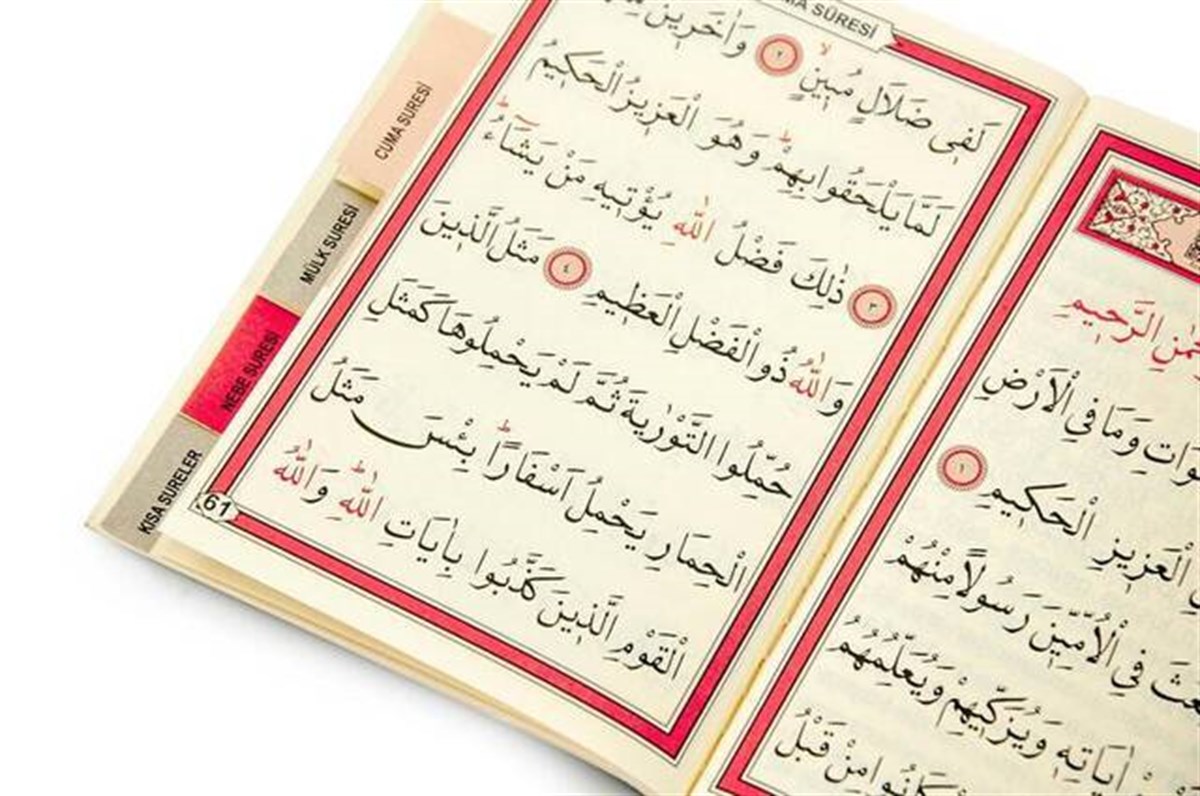 الرَّحٖيمِ
وَمَا فِي الْاَرْضِ
الْعَزٖيزِ الْحَكٖيمِ ١
فِي الْاُمِّيّٖنَ رَسُولًا مِنْهُمْ
اٰيَاتِهٖ وَيُزَكّٖيهِمْ وَيُعَلِّمُهُمُ
كَانُوا مِنْ قَبْلُ
SÛRESİ
لَفٖي ضَلَالٍ مُبٖينٍ ٢ وَاٰخَرٖينَ
لَمَّا يَلْحَقُوا بِهِمْ وَهُوَ الْعَزٖيزُ الْحَكٖيمُ
٣ ذٰلِكَ فَضْلُ اللّٰهِ يُؤْتٖيهِ مَنْ يَشَٓاءُ
وَاللّٰهُ ذُو الْفَضْلِ الْعَظٖيمِ ٤ مَثَلُ الَّذٖينَ
حُمِّلُوا التَّوْرٰيةَ ثُمَّ لَمْ يَحْمِلُوهَا كَمَثَلِ
الْحِمَارِ يَحْمِلُ اَسْفَارًا بِئْسَ مَثَلُ
الْقَوْمِ الَّذٖينَ كَذَّبُوا بِاٰيَاتِ اللّٰهِ وَاللّٰهُ
61
CUMA SURESİ
MÜLK SURESİ
NEBE SURESİ
KISA SURELER